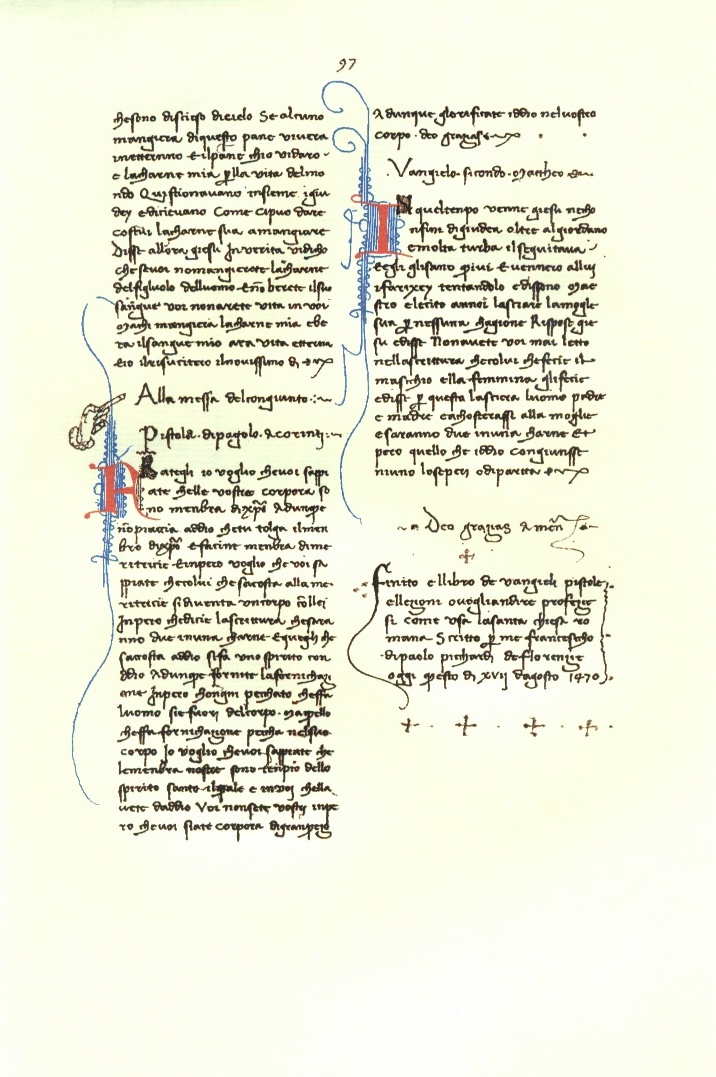 97
che sono disceso di cielo Se alcuno
mangiera di questo pane vivera
in etterno E il pane chio vi daro
e la charne mia p la vita del mo
ndo Quistionavano insieme i giu
dey e dicievano Come ci puo dare
costui la charne sua a mangiare
Disse allora giesu In verita vi dicho
che se voi no mangierete la charne
del figluolo delluomo E no berete il suo
sangue voi non arete vita in voi
Ma chi mangiera la charne mia e be
ra il sangue mio ara vita etterna
E io il risucitero il novissimo di
Alla messa del congiunto
Pistola di pagolo A corinti
Rategli io voglio che voi sappi
ate che lle vostre corpora so
no menbra di xpo Adunque
no piaccia addio che tu tolga il men
bro di xpo e facine menbra di me
ritricie E inpero voglio che voi sa
ppiate che colui che sacosta alla me
ritricie si diventa un corpo co llei
Inpero che dicie la scrittura che sara
nno due in una charne E quegli che
sacosta addio si fa uno spirito con
ddio Adunque fornite la fornichazi
one Inpero chongni pechato che ffa
luomo sie fuori del corpo Ma quello
che ffa fornichazione pecha nel suo
corpo Io voglio che voi sappiate che
le menbra nostre sono tenpio dello
spirito santo il quale e in voi che lla
vete daddio Voi non sete vostri inpe
ro che voi siate corpora di gran pregio
Adunque glorificate iddio nel vostro
corpo deo grazias
Vangielo sicondo Mattheo
IN quel tempo venne giesu ne cho
nfini di giudea oltre al giordano
e molta turba il seguitava
E egli gli sano quivi E vennero a llui
i farixey tentandolo e dissono Mae
stro e lecito a nnoi lasciare la mogle
sua p nessuna chagione Rispose gie
su e disse Non avete voi mai letto
nella scrittura che colui che fecie il
maschio e lla femmina gli fecie
e disse p questa lasciera luomo padre
e madre e achosterassi alla moglie
e saranno due in una charne E
pero quello che iddio congiunsse
niuno lo seperi o diparta
Deo grazias Amen
Finito e llibro de vangieli pistole
e llezioni o vogliandire profezie
si come usa la santa chiesa ro
mana Scritto p me franciescho
di paolo pichardi de florenzie
oggi questo di XVII dagosto 1470